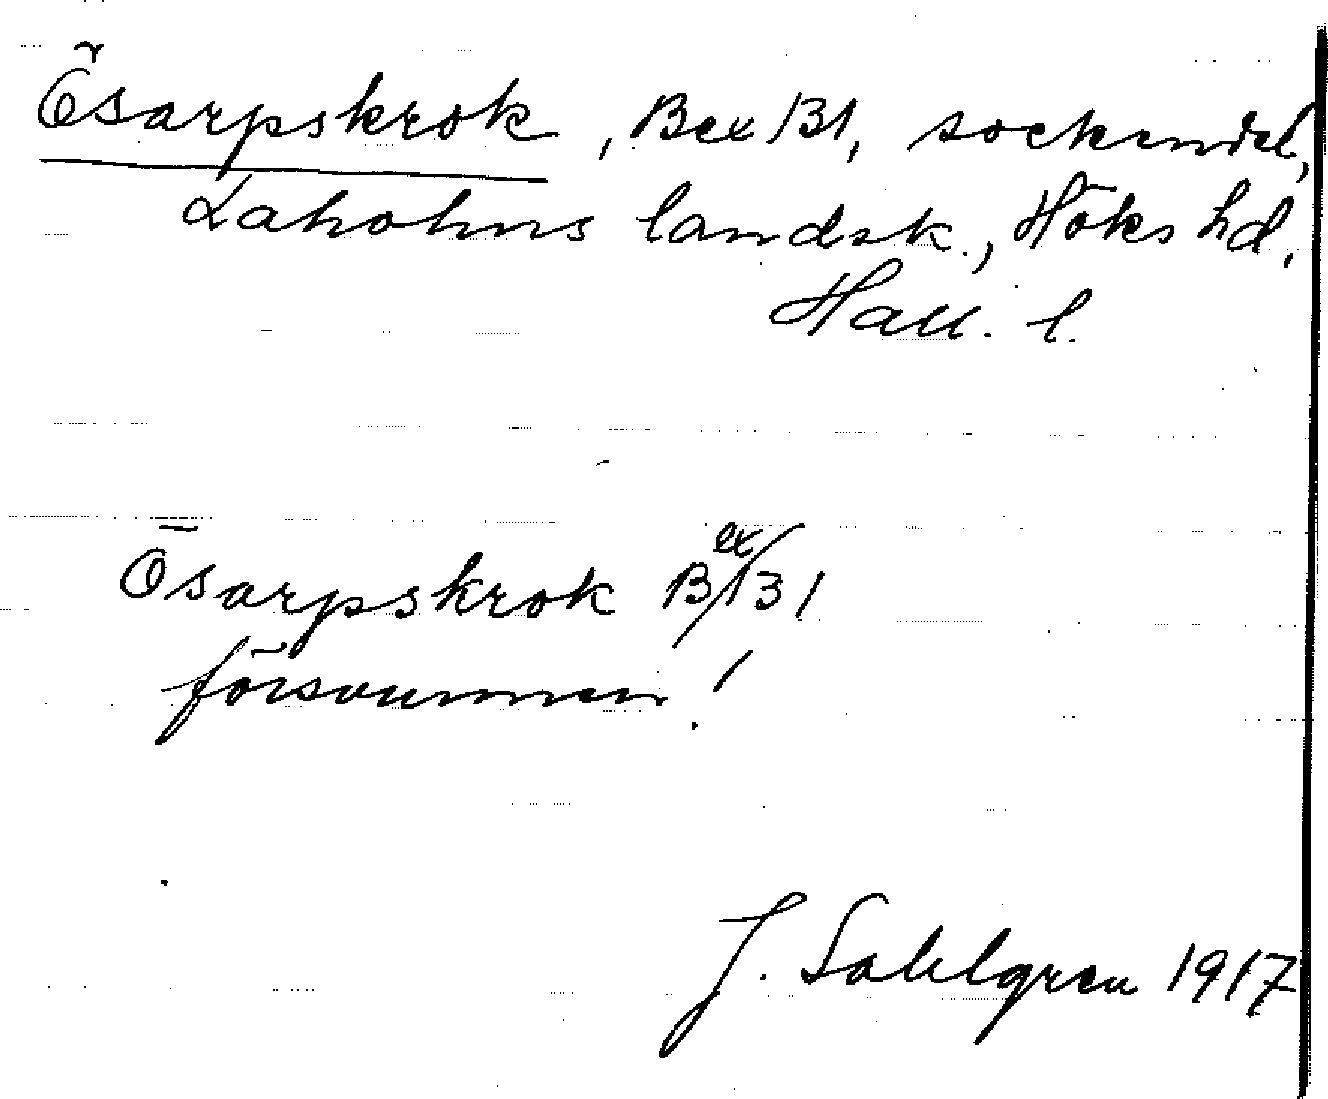 Ösarpskrok, Bex 131, sockendel,
Laholms landsk., Höks hd,
Hall. l.
Ösarpskrok Bex/131
försvunnen!
J. Sahlgren 1917